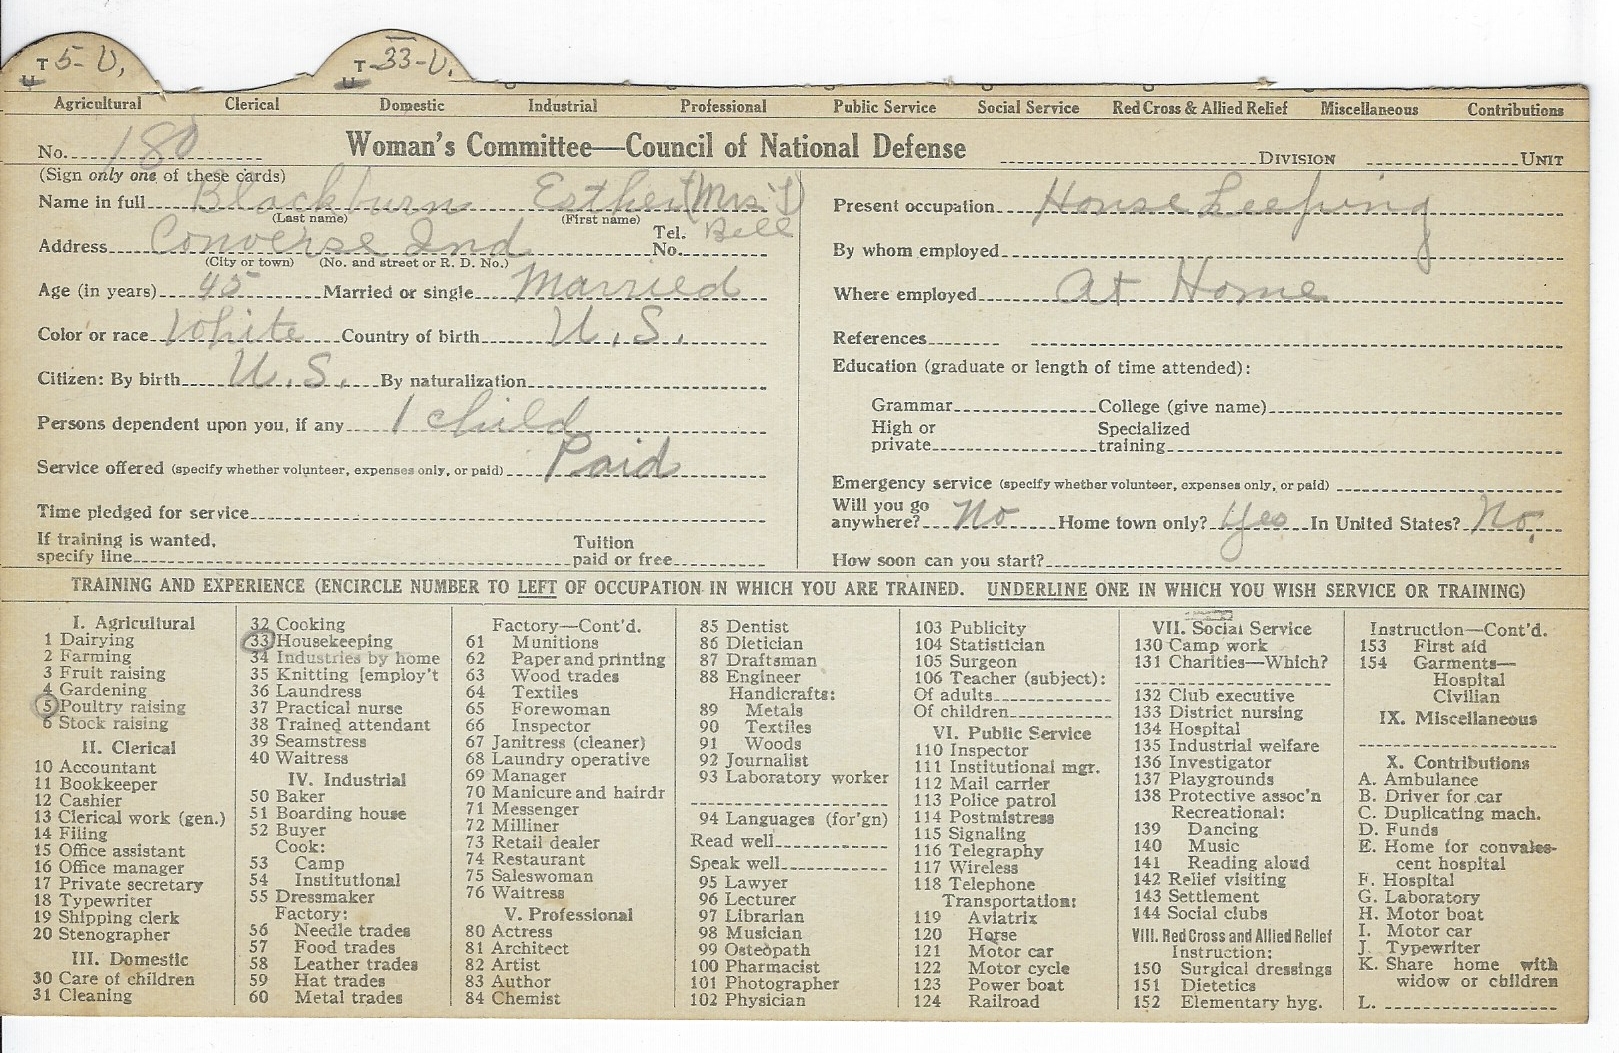 T 5-U, T 33-U.
U U
Agricultural Clerical Domestic Industrial Professional Public Service Social Service Red Cross & Allied Relief Miscellaneous Contributions
No. 180 Woman's Committee—Council of National Defense DIVISION UNIT
(Sign only one of these cards)
Name in full Blackburn Esther (Mrs J)
(Last name) (First name)
Address Converse Ind Tel. No. Bell
(City or town) (No. and street or R. D. No.)
Age (in years) 45 Married or single Married
Color or race White Country of birth U.S.
Citizen: By birth U.S. By naturalization
Persons dependent upon you, if any 1 child
Service offered (specify whether volunteer, expenses only, or paid) Paid
Time pledged for service
If training is wanted, Tuition
specify line paid or free
Present occupation House Keeping
By whom employed
Where employed At Home
References
Education (graduate or length of time attended):
Grammar College (give name)
High or Specialized
private training
Emergency service (specify whether volunteer, expenses only, or paid)
Will you go
anywhere? No Home town only? Yes In United States? No.
How soon can you start?
TRAINING AND EXPERIENCE (ENCIRCLE NUMBER TO LEFT OF OCCUPATION IN WHICH YOU ARE TRAINED. UNDERLINE ONE IN WHICH YOU WISH SERVICE OR TRAINING)
I. Agricultural
1 Dairying
2 Farming
3 Fruit raising
4 Gardening
5 Poultry raising
6 Stock raising
II. Clerical
10 Accountant
11 Bookkeeper
12 Cashier
13 Clerical work (gen.)
14 Filing
15 Office assistant
16 Office manager
17 Private secretary
18 Typewriter
19 Shipping clerk
20 Stenographer
III. Domestic
30 Care of children
31 Cleaning
32 Cooking
33 Housekeeping
34 Industries by home
35 Knitting [employ't
36 Laundress
37 Practical nurse
38 Trained attendant
39 Seamstress
40 Waitress
IV. Industrial
50 Baker
51 Boarding house
52 Buyer
Cook:
53 Camp
54 Institutional
55 Dressmaker
Factory:
56 Needle trades
57 Food trades
58 Leather trades
59 Hat trades
60 Metal trades
Factory—Cont'd.
61 Munitions
62 Paper and printing
63 Wood trades
64 Textiles
65 Forewoman
66 Inspector
67 Janitress (cleaner)
68 Laundry operative
69 Manager
70 Manicure and hairdr
71 Messenger
72 Milliner
73 Retail dealer
74 Restaurant
75 Saleswoman
76 Waitress
V. Professional
80 Actress
81 Architect
82 Artist
83 Author
84 Chemist
85 Dentist
86 Dietician
87 Draftsman
88 Engineer
Handicrafts:
89 Metals
90 Textiles
91 Woods
92 Journalist
93 Laboratory worker
94 Languages (for'gn)
Read well
Speak well
95 Lawyer
96 Lecturer
97 Librarian
98 Musician
99 Osteopath
100 Pharmacist
101 Photographer
102 Physician
103 Publicity
104 Statistician
105 Surgeon
106 Teacher (subject):
Of adults
Of children
VI. Public Service
110 Inspector
111 Institutional mgr.
112 Mail carrier
113 Police patrol
114 Postmistress
115 Signaling
116 Telegraphy
117 Wireless
118 Telephone
Transportation:
119 Aviatrix
120 Horse
121 Motor car
122 Motor cycle
123 Power boat
124 Railroad
VII. Social Service
130 Camp work
131 Charities—Which?
132 Club executive
133 District nursing
134 Hospital
135 Industrial welfare
136 Investigator
137 Playgrounds
138 Protective assoc'n
Recreational:
139 Dancing
140 Music
141 Reading aloud
142 Relief visiting
143 Settlement
144 Social clubs
VIII. Red Cross and Allied Relief
Instruction:
150 Surgical dressings
151 Dietetics
152 Elementary hyg.
Instruction—Cont'd.
153 First aid
154 Garments—
Hospital
Civilian
IX. Miscellaneous
X. Contributions
A. Ambulance
B. Driver for car
C. Duplicating mach.
D. Funds
E. Home for convales-
cent hospital
F. Hospital
G. Laboratory
H. Motor boat
I. Motor car
J. Typewriter
K. Share home with
widow or children
L.